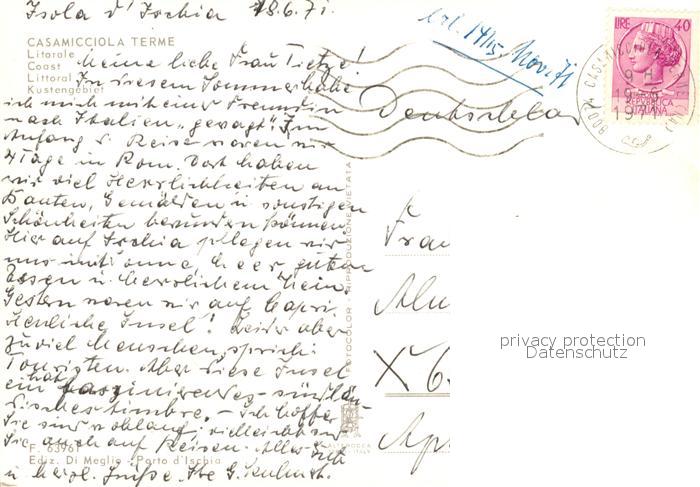 Isola d'Ischia 18.6.71.
CASAMICCIOLA TERME
Litorale
Coast
Littoral
Küstengebiet
Meine liebe Frau Tietze!
In diesem Sommer habe
ich mich mit einer Freundin
nach Italien „gewagt“. Am
Anfang d. Reise waren wir
4 Tage in Rom. Dort haben
wir viel Herrlichkeiten an
Bauten, Gemälden u. sonstigen
Schönheiten bewundern können.
Hier auf Ischia pflegen wir
uns mit Sonne, Meer, guten
Essen u. herrlichem Wein.
Gestern waren wir auf Capri.
Herrliche Insel! Leider aber
zuviel Menschen, sprich:
Touristen. Aber diese Insel
hat
ein faszinierendes - südlän-
disches timbre. - Ich hoffe,
Sie sind wohlauf; vielleicht sind
Sie auch auf Reisen. Alles Gute
u. herzl. Grüße. Ihre G.
F. 63961
Ediz. Di Meglio - Porto d'Ischia
FOTOCOLOR - RIPRODUZIONE VIETATA
LIRE 40
REPUBBLICA
ITALIANA
80074 CASAMICCIOLA
Nov. 71
Deutschland
Frau
X 6
privacy protection
Datenschutz